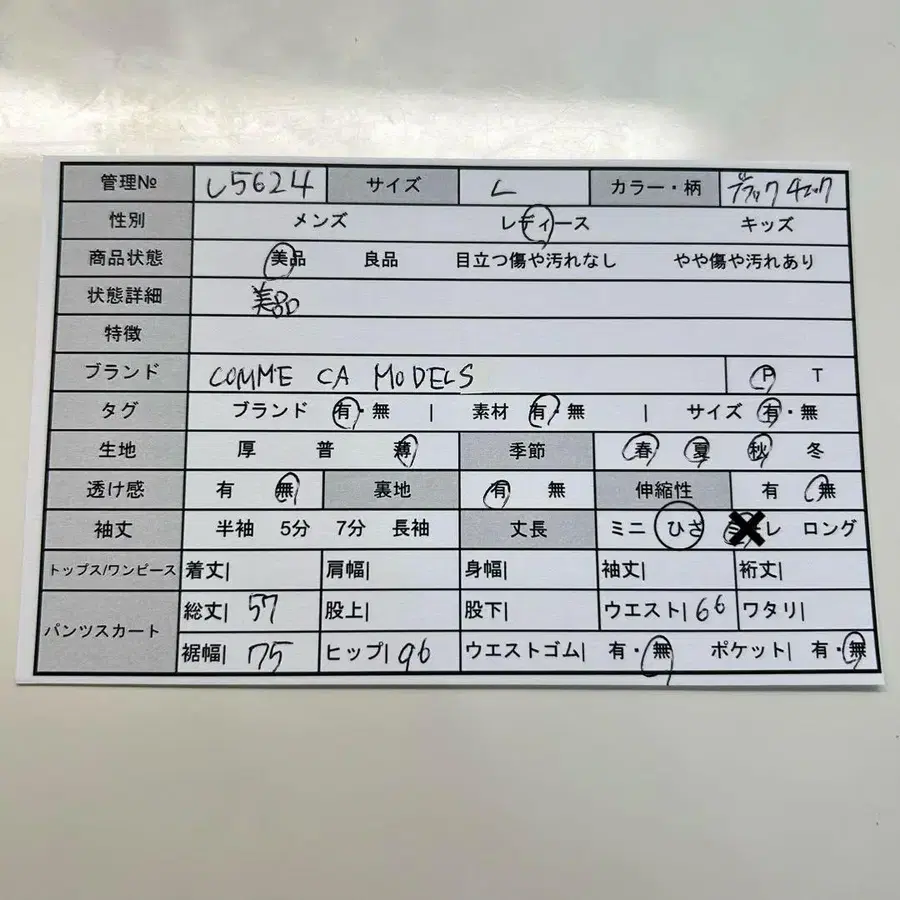 管理№ L5624 サイズ L カラー・柄 ブラックチェック
性別 メンズ レディース キッズ
商品状態 美品 良品 目立つ傷や汚れなし やや傷や汚れあり
状態詳細 美品
特徴
ブランド COMME CA MODELS P T
タグ ブランド 有・無 | 素材 有・無 | サイズ 有・無
生地 厚 普 薄 季節 春 夏 秋 冬
透け感 有 無 裏地 有 無 伸縮性 有 無
袖丈 半袖 5分 7分 長袖 丈長 ミニ ひざ レ ロング
トップス/ワンピース 着丈| 肩幅| 身幅| 袖丈| 裄丈|
パンツスカート 総丈| 57 股上| 股下| ウエスト| 66 ワタリ|
裾幅| 75 ヒップ| 96 ウエストゴム| 有・無 ポケット| 有・無